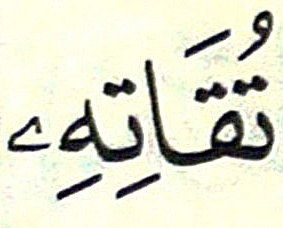 تُقَاتِهِۦ